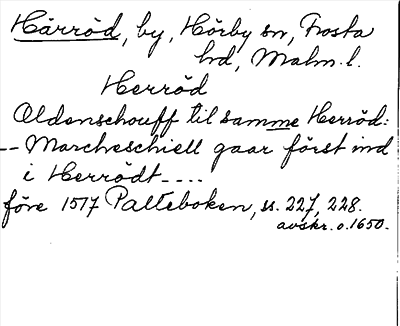 Härröd, by, Hörby sn, Frosta
hd, Malm. l.
Herröd
Oldenschouff til samme Herröd:
-- Marcheschiell gaar först ind
i Herrödt ----
före 1517 Palteboken, ss. 227, 228.
avskr. o. 1650.